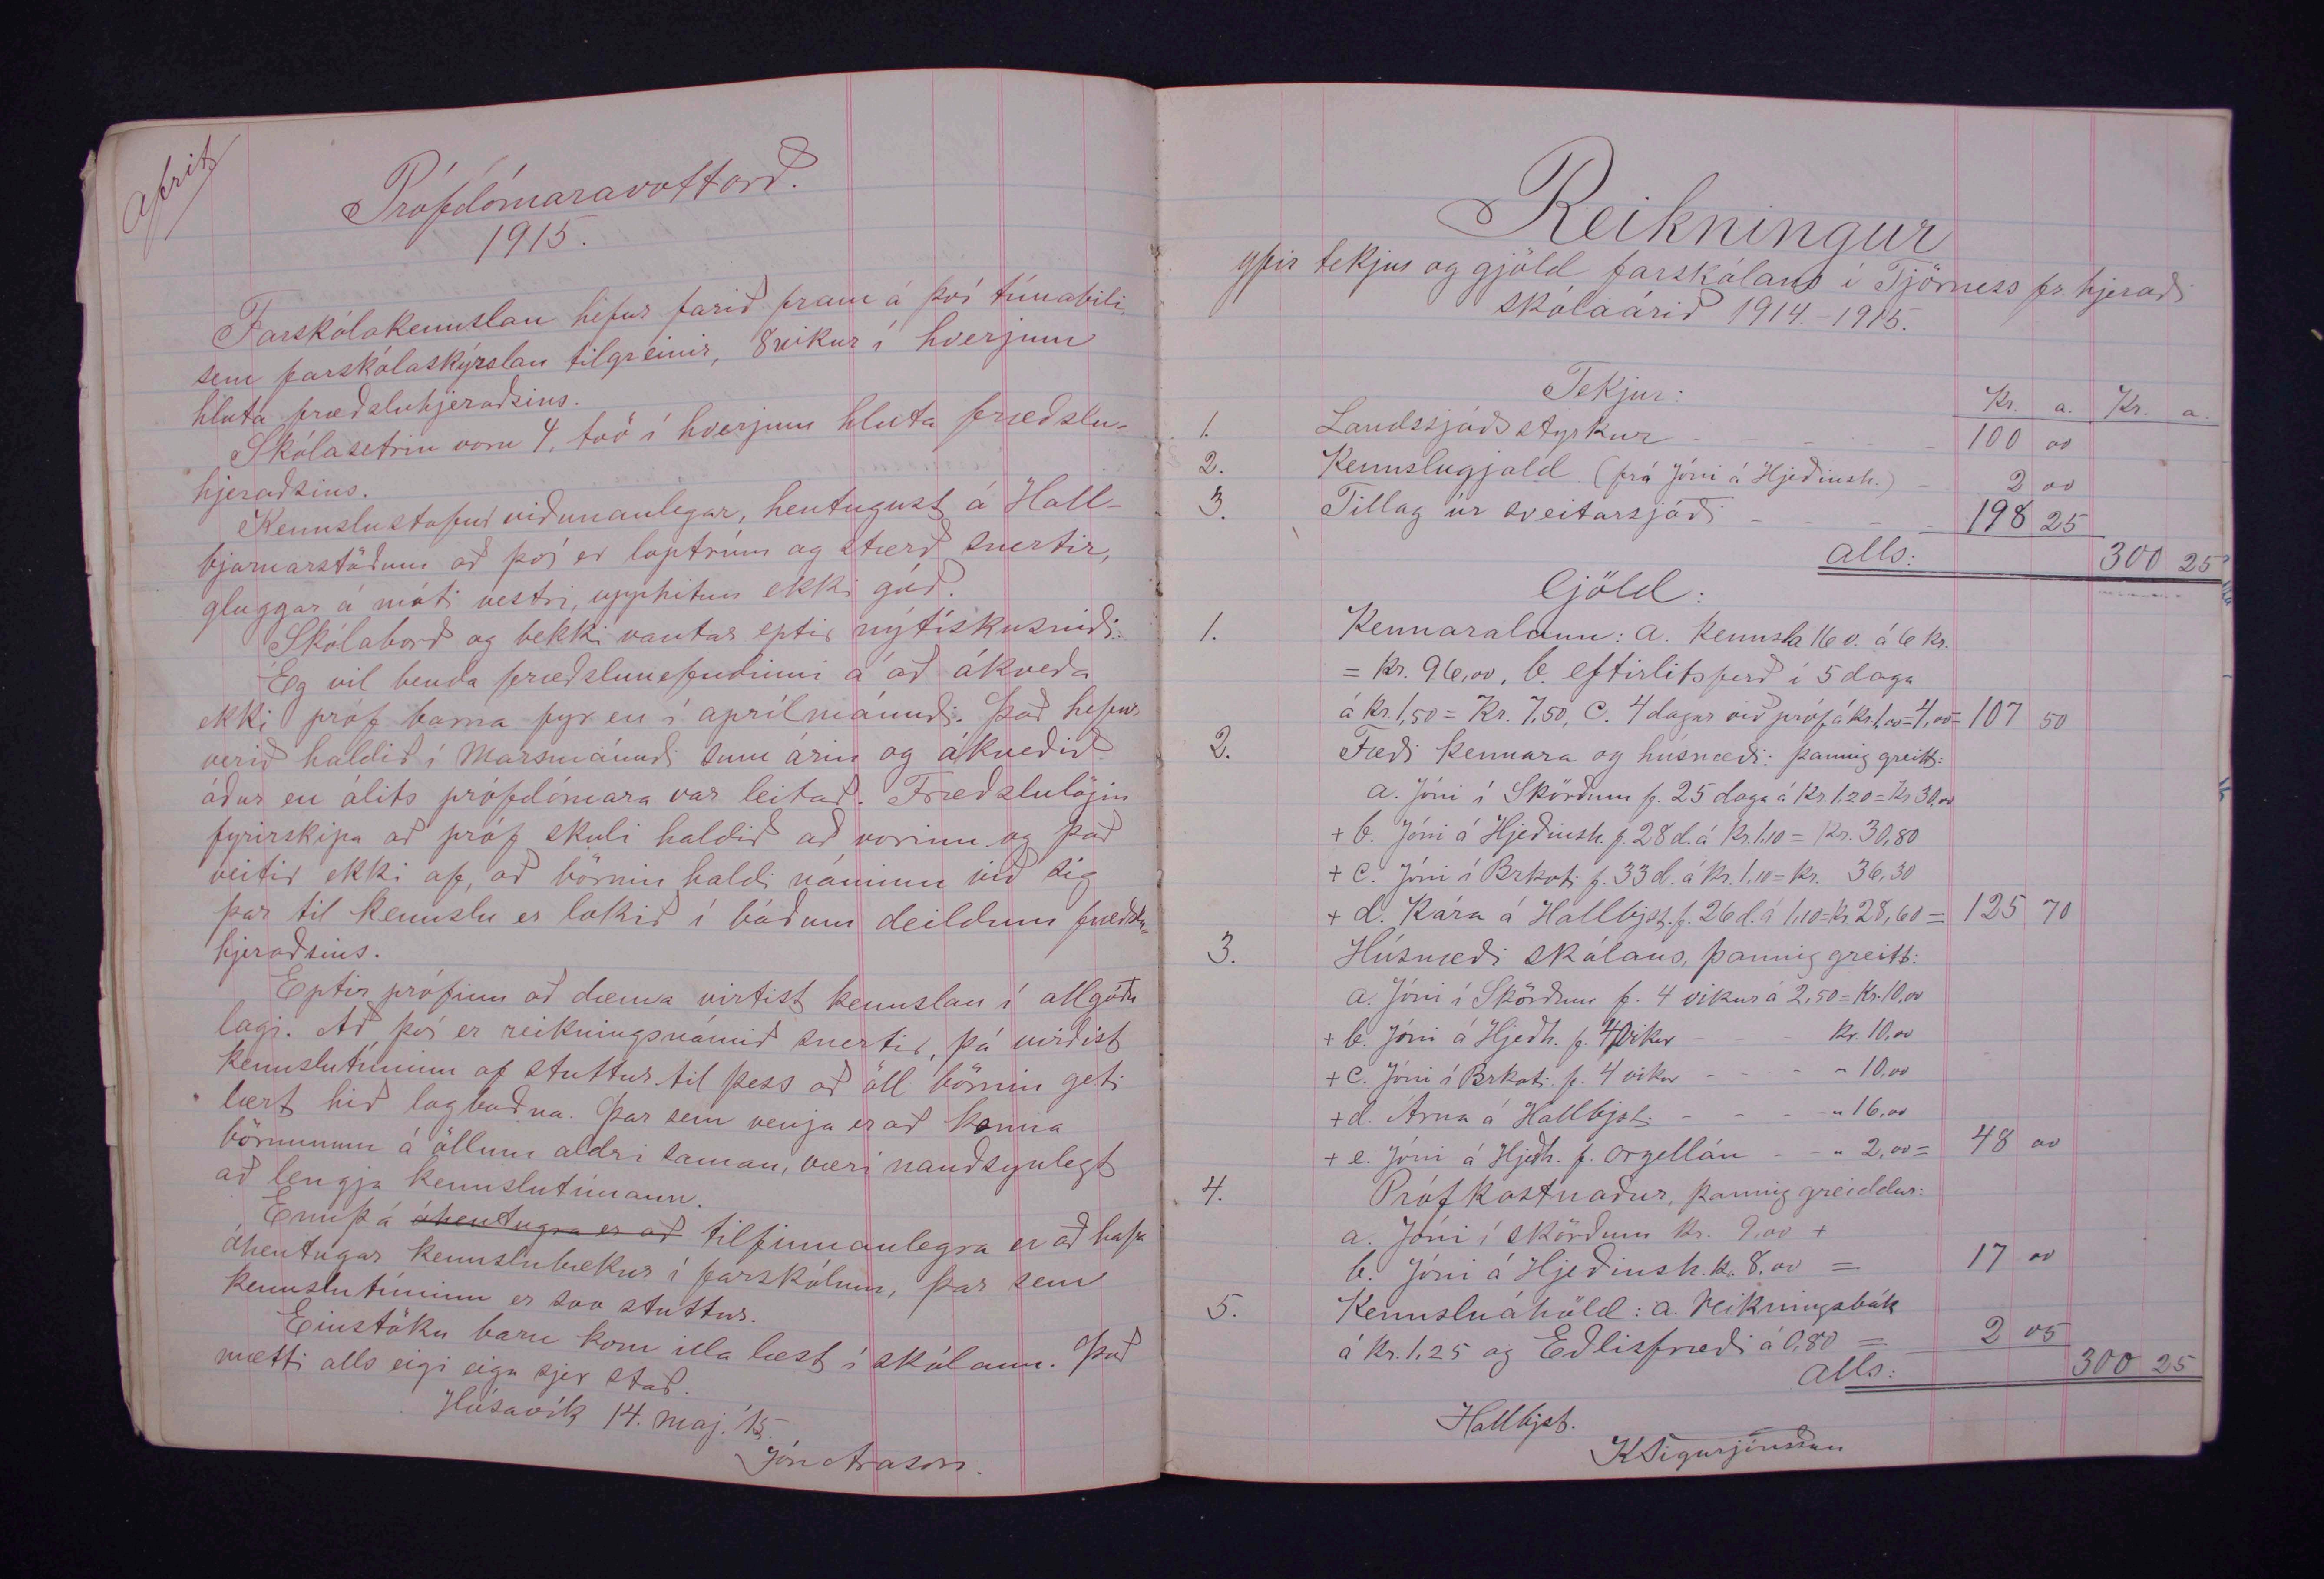 Afrit
Prófdómaravottorð.
1915.
Farskólakennslan hefur farið fram á því tímabili,
sem farskólaskýrslan tilgreinir, 8 vikur í hverjum
hluta fræðsluhjeraðsins.
Skólasetrin voru 4, tvö í hverjum hluta fræðslu-
hjeraðsins.
Kennslustofur viðunanlegar, hentugust á Hall-
bjarnarstöðum að því er loptrúm og stærð snertir,
gluggar á móti vestri, upphitun ekki góð.
Skólaborð og bekki vantar eptir nýtískusniði.
Eg vil benda fræðslunefndinni á að ákveða
ekki próf barna fyr en í aprílmánuði. Það hefur
verið haldið í Marsmánuði sum árin og ákveðið
áður en álits prófdómara var leitað. Fræðslulögin
fyrirskipa að próf skuli haldið að vorinu og það
veitir ekki af, að börnin haldi náminu við sig
þar til kennslu er lokið í báðum deildum fræðslu-
hjeraðsins.
Eptir prófinu að dæma virtist kennslan í allgóðu
lagi. Að því er reikningsnámið snertir, þá virðist
kennslutíminn of stuttur til þess að öll börnin geti
lært hið lögboðna. Þar sem venja er að kenna
börnunum á öllum aldri saman, væri nauðsynlegt
að lengja kennslutímann.
Ennþá óhentugra er að tilfinnanlegra er að hafa
óhentugar kennslubækur í farskólum, þar sem
kennslutíminn er svo stuttur.
Einstöku barn kom illa læst í skólann. Það
mætti alls eigi eiga sjer stað.
Húsavík 14. maj. '15.
Jón Arason.
Reikningur
yfir tekjur og gjöld farskólans í Tjörness fr. hjeraði
skólaárið 1914-1915.
Tekjur: Kr. a. Kr. a.
1. Landssjóðsstyrkur - - - - - 100 00
2. Kennslugjald (frá Jóni á Hjeðinsh.) - 2 00
3. Tillag úr sveitarsjóði - - - - 198 25
Alls: 300 25
Gjöld:
1. Kennaralaun: a. Kennsla 16 v. á 6 kr.
= kr. 96,00, b. eftirlitsferð í 5 daga
á kr. 1,50 = Kr. 7,50, c. 4 dagar við próf á kr. 1,00 = 4,00 = 107 50
2. Fæði kennara og húsnæði: þannig greitt:
a. Jóni í Skörðum f. 25 daga á Kr. 1.20 = Kr 30,00
+ b. Jóni á Hjeðinsh. f. 28 d. á Kr. 1.10 = Kr. 30,80
+ c. Jóni í Brkoti f. 33 d. á Kr. 1,10 = Kr. 36,30
+ d. Kára á Hallbjst. f. 26 d. á 1,10 = Kr 28,60 = 125 70
3. Húsnæði skólans, þannig greitt:
a. Jóni í Skörðum f. 4 vikur á 2,50 = Kr. 10,00
+ b. Jóni á Hjeðh. f. 4 vikur - - - Kr. 10,00
+ c. Jóni í Brkoti f. 4 vikur - - - - " 10,00
+ d. Árna á Hallbjst. - - - - " 16,00
+ e. Jóni á Hjeðh. f. orgellán - - " 2,00 = 48 00
4. Prófkostnaður, þannig greiddur:
a. Jóni í Skörðum kr. 9,00 +
b. Jóni á Hjeðinsh. k. 8,00 = 17 00
5. Kennsluáhöld: a. Reikningsbók
á kr. 1,25 og Eðlisfræði á 0,80 = 2 05
Alls: 300 25
Hallbjst.
K Sigurjónsson